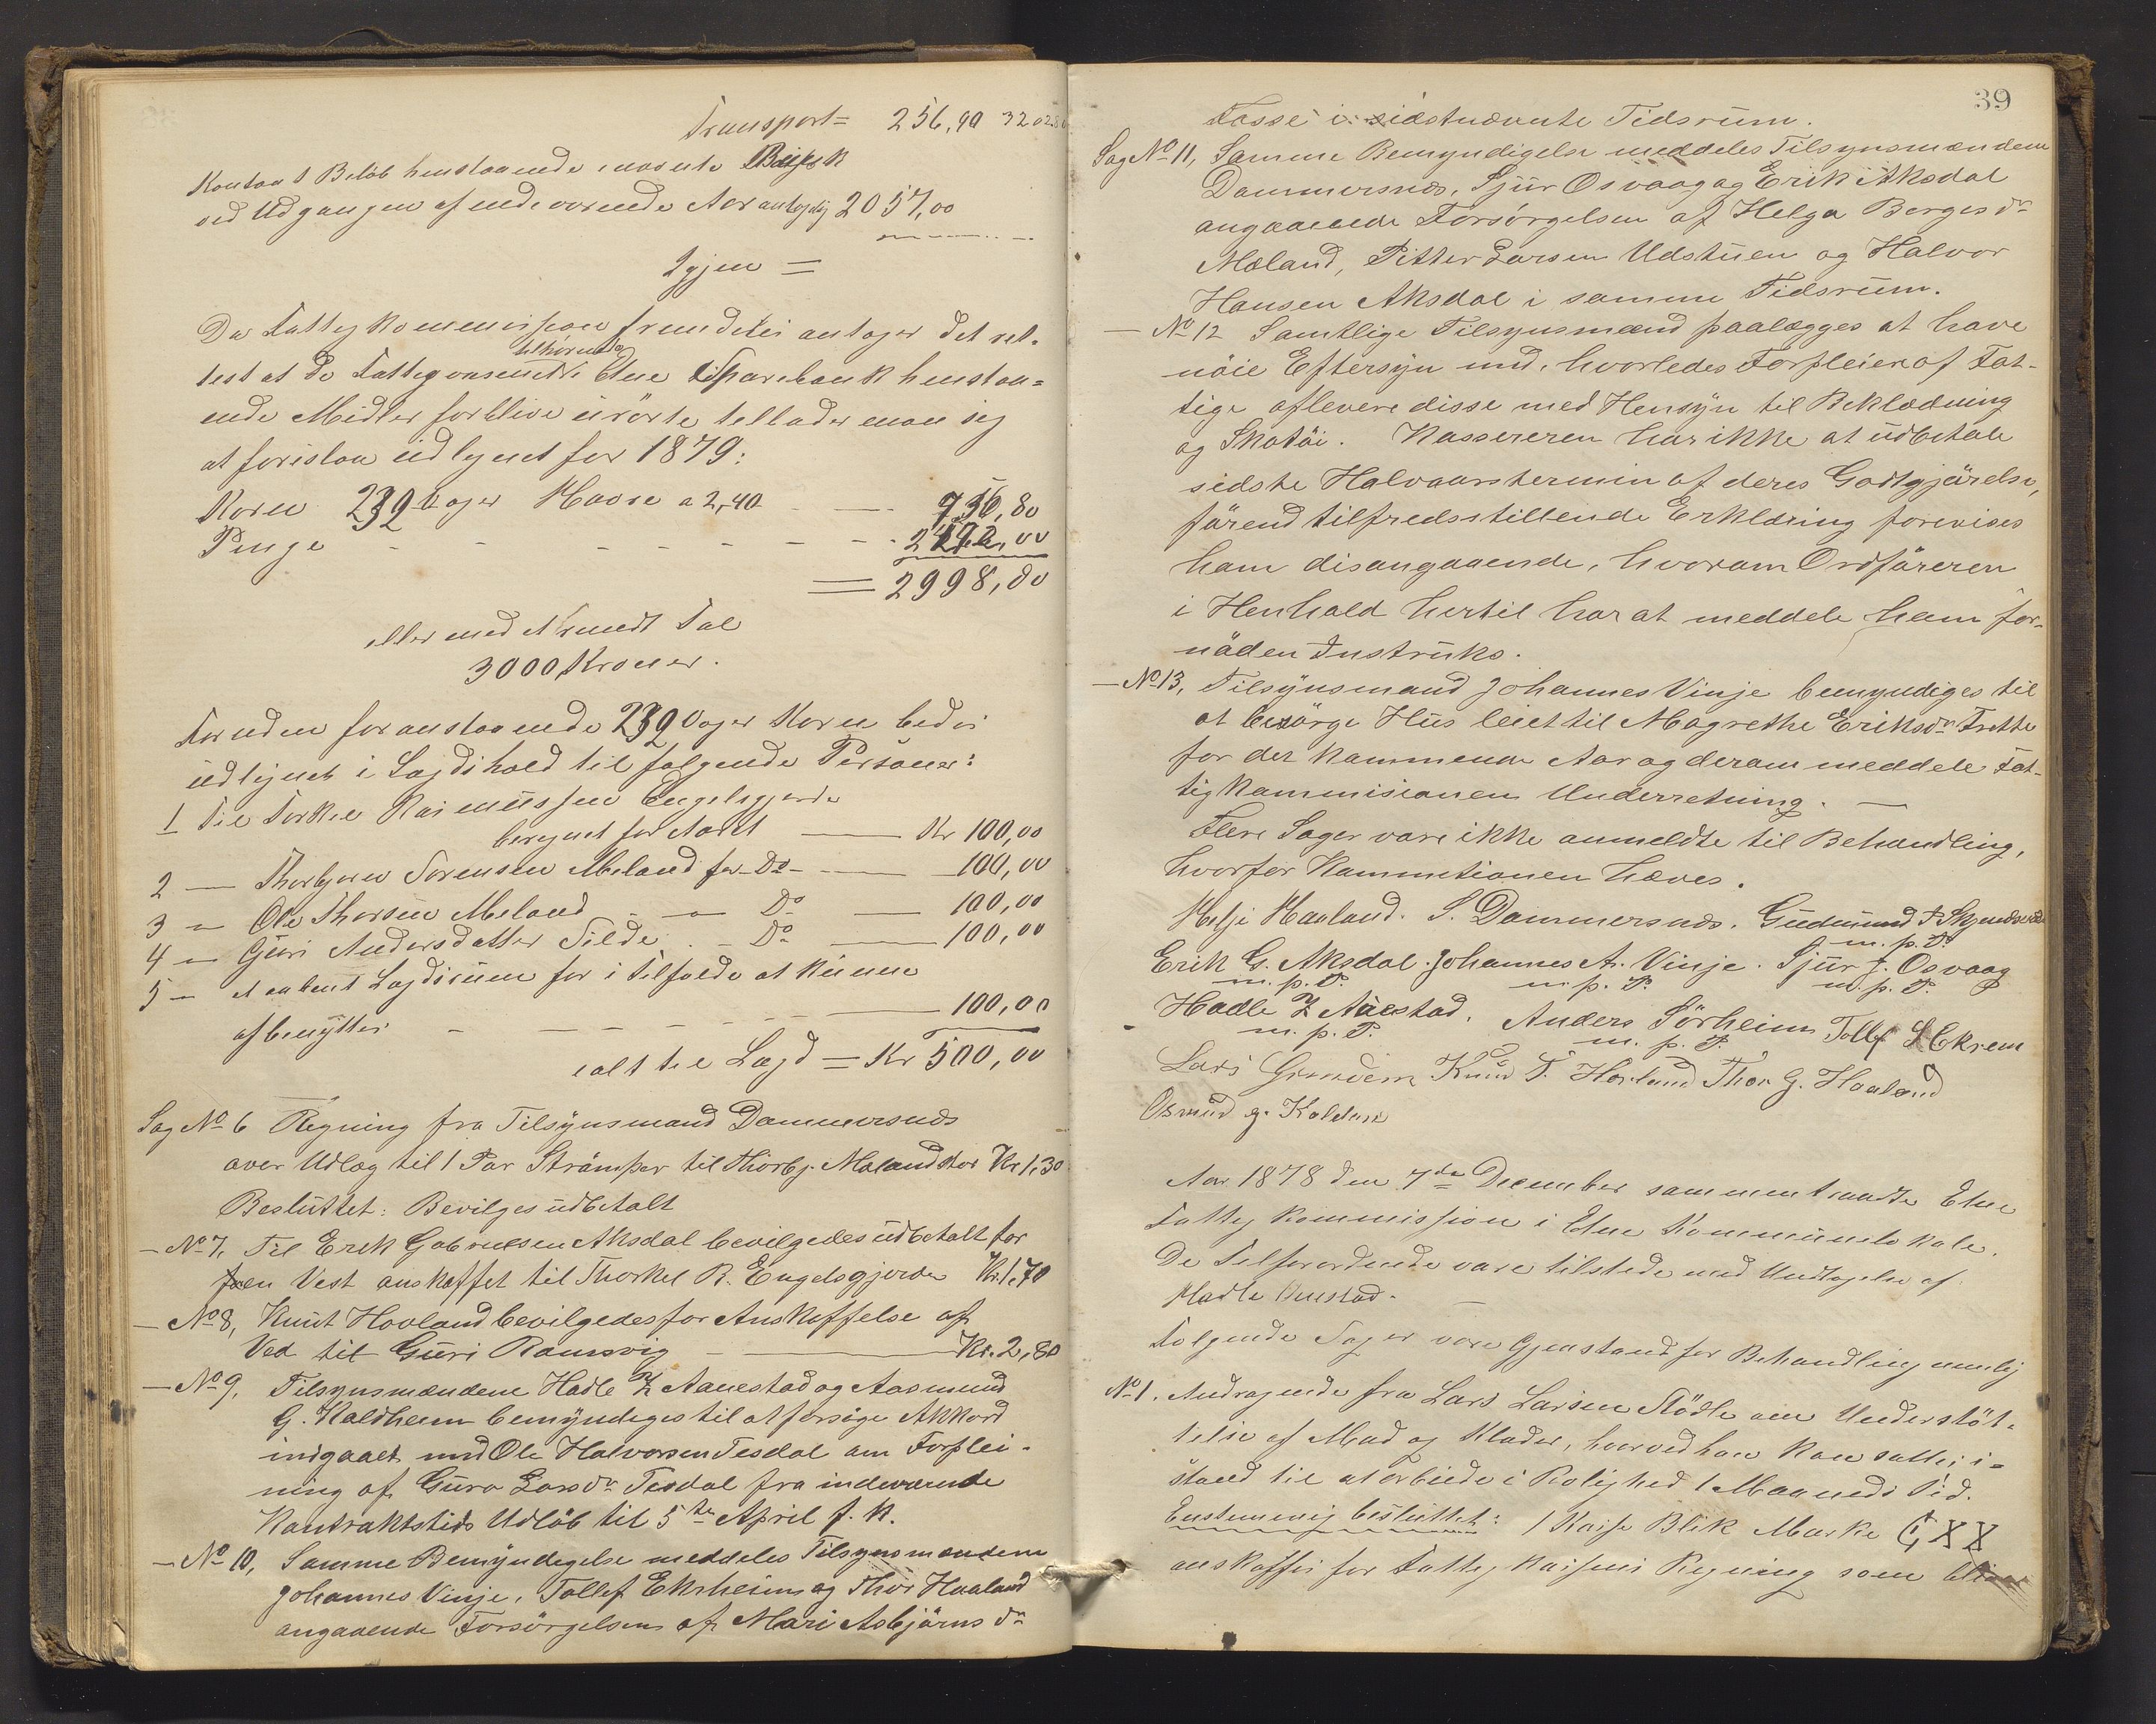 Transport = 256,90 3202.80
Kontant Beløb henstaaende i Bank
ved Udgangen af indeværende Aar antagelig 2057,00
Igjen =
Da Fattigkommissionen fremdeles antager det ret-
test at de Fattigvæsenet tilhørende i Etne Sparebank henstaa-
ende Midler forblive urörte tillader man sig
at foreslaa udlignet for 1879:
Korn 239 Voger Havre a 2,40 — 756,80
Penge - - - - - - 2,00
= 2998,80
eller med et rundt Tal
3000 Kroner.
Foruden foranstaaende 239 Voger Korn bedes
udlignet i Lægdshold til følgende Personer:
1 Til Torkel Rasmussen Engelsgjerde
beregnet for Aaret — Kr 100,00
2 — Thorbjørn Sørensen Meland for Do — 100,00
3 — Ole Thorsen Meland - — Do — 100,00
4 — Guri Andersdatter Silde . - Do — 100,00
5 — et aabent Lægdsrum for i Tilfælde at kunne
afbenyttes - - - - — 100,00
ialt til Lægd = Kr 500,00
Sag No 6 Regning fra Tilsynsmand Dommersnæs
over Udlæg til 1 Par Strämper til Thorbj. Mæland stor Kr 1,30
Besluttet: Bevilges udbetalt
— No 7, Til Erik Gabrielsen Aksdal bevilgedes udbetalt for
en Vest anskaffet til Thorkel R. Engelsgjerde Kr. 1,70
— No 8, Knut Hovland bevilgedes for Anskaffelse af
Ved til Guri Ramsvig — Kr. 2,80
— No 9, Tilsynsmændene Hadle Z Aanestad og Aasmund
G. Kaldheim bemyndiges til at forsöge Akkord
indgaaet med Ole Halvorsen Tesdal om Forplei-
ning af Guro Larsdr Tesdal fra indeværende
Kontraktstids Udlöb til 5te April f. k.
— No 10, Samme Bemyndigelse meddeles Tilsynsmændene
Johannes Vinje, Tollef Ekrheim og Thor Haaland
angaaende Forsörgelsen af Mari Asbjörnsdr
39
Fosse i sidstnævnte Tidsrum.
Sag No 11, Samme Bemyndigelse meddeles Tilsynsmændene
Dommersnæs, Sjur Osvaag og Erik Aksdal
angaaende Forsörgelsen af Helga Borgesdr
Mæland, Pitter Larsen Udstuen og Halvor
Hansen Aksdal i samme Tidsrum.
— No 12 Samtlige Tilsynsmænd paalægges at have
nöie Eftersyn med, hvorledes Forpleiere af Fat-
tige aflevere disse med Hensyn til Beklædning
og Skotöi. Kassereren har ikke at udbetale
sidste Halvaarstermin af deres Godtgjörelse,
förend tilfredsstillende Erklæring forevises
ham desangaaende, hvorom Ordföreren
i Henhold hertil har at meddele ham for-
nöden Instruks.
— No 13, Tilsynsmand Johannes Vinje bemyndiges til
at besörge Hus leiet til Magrethe Eriksdr Frette
for det kommende Aar og derom meddele Fat-
tigkommisionen Underretning. —
Flere Sager vare ikke anmeldte til Behandling,
hvorfor Kommitionen hæves.
Helje Haaland. S. Dommersnæs. Gudmund
m. p. P.
Erik G. Aksdal. Johannes A. Vinje. Sjur J. Osvaag
m. p. P. m. p. P. m. p. P.
Hadle Z Anestad. Anders Sörheim Tollef S Ekrem
m. p. P. m. p. P.
Lars Grindem Knud T. Hovland Thor G. Haaland
Osmud g. Kaldem
Aar 1878 den 7de December sammentraadte Etne
Fattigkommission i Etne Kommunelokale.
De Tilforordnede vare tilstede med Undtagelse af
Hadle Anestad. —
Følgende Sager vare Gjenstand for Behandling nemlig
No 1. Andragende fra Lars Larsen Stödle om Understöt-
telse af Mad og Klæder, hvorved han kan sættes i-
stand til at arbeide i Rolighed 1 Maaneds Tid.
Enstemmig besluttet: 1 Kasse Blik Marke C X X
anskaffes for Fattigkassens Regning som